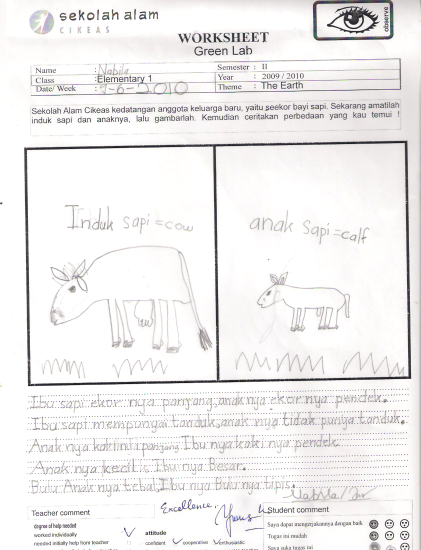 sekolah alam
CIKEAS
observe
WORKSHEET
Green Lab
Name : Nabila Semester : II
Class : Elementary 1 Year : 2009 / 2010
Date/ Week : 9-6-2010 Theme : The Earth
Sekolah Alam Cikeas kedatangan anggota keluarga baru, yaitu seekor bayi sapi. Sekarang amatilah
induk sapi dan anaknya, lalu gambarlah. Kemudian ceritakan perbedaan yang kau temui !
Induk sapi = cow
anak sapi = calf
Ibu sapi ekor nya panjang, anak nya ekor nya pendek.
Ibu sapi mempunyai tanduk, anak nya tidak punya tanduk.
Anak nya kaki panjang Ibu nya kaki nya pendek
Anak nya kecil Ibu nya Besar.
Bulu Anak nya tebal, Ibu nya Bulu nya tipis.
Nabila
Excellence.
Teacher comment
Student comment
degree of help needed
worked individually
attitude
Saya dapat mengerjakannya dengan baik
needed initially help from teacher
confident cooperative enthusiastic
Tugas ini mudah
Saya suka tugas ini